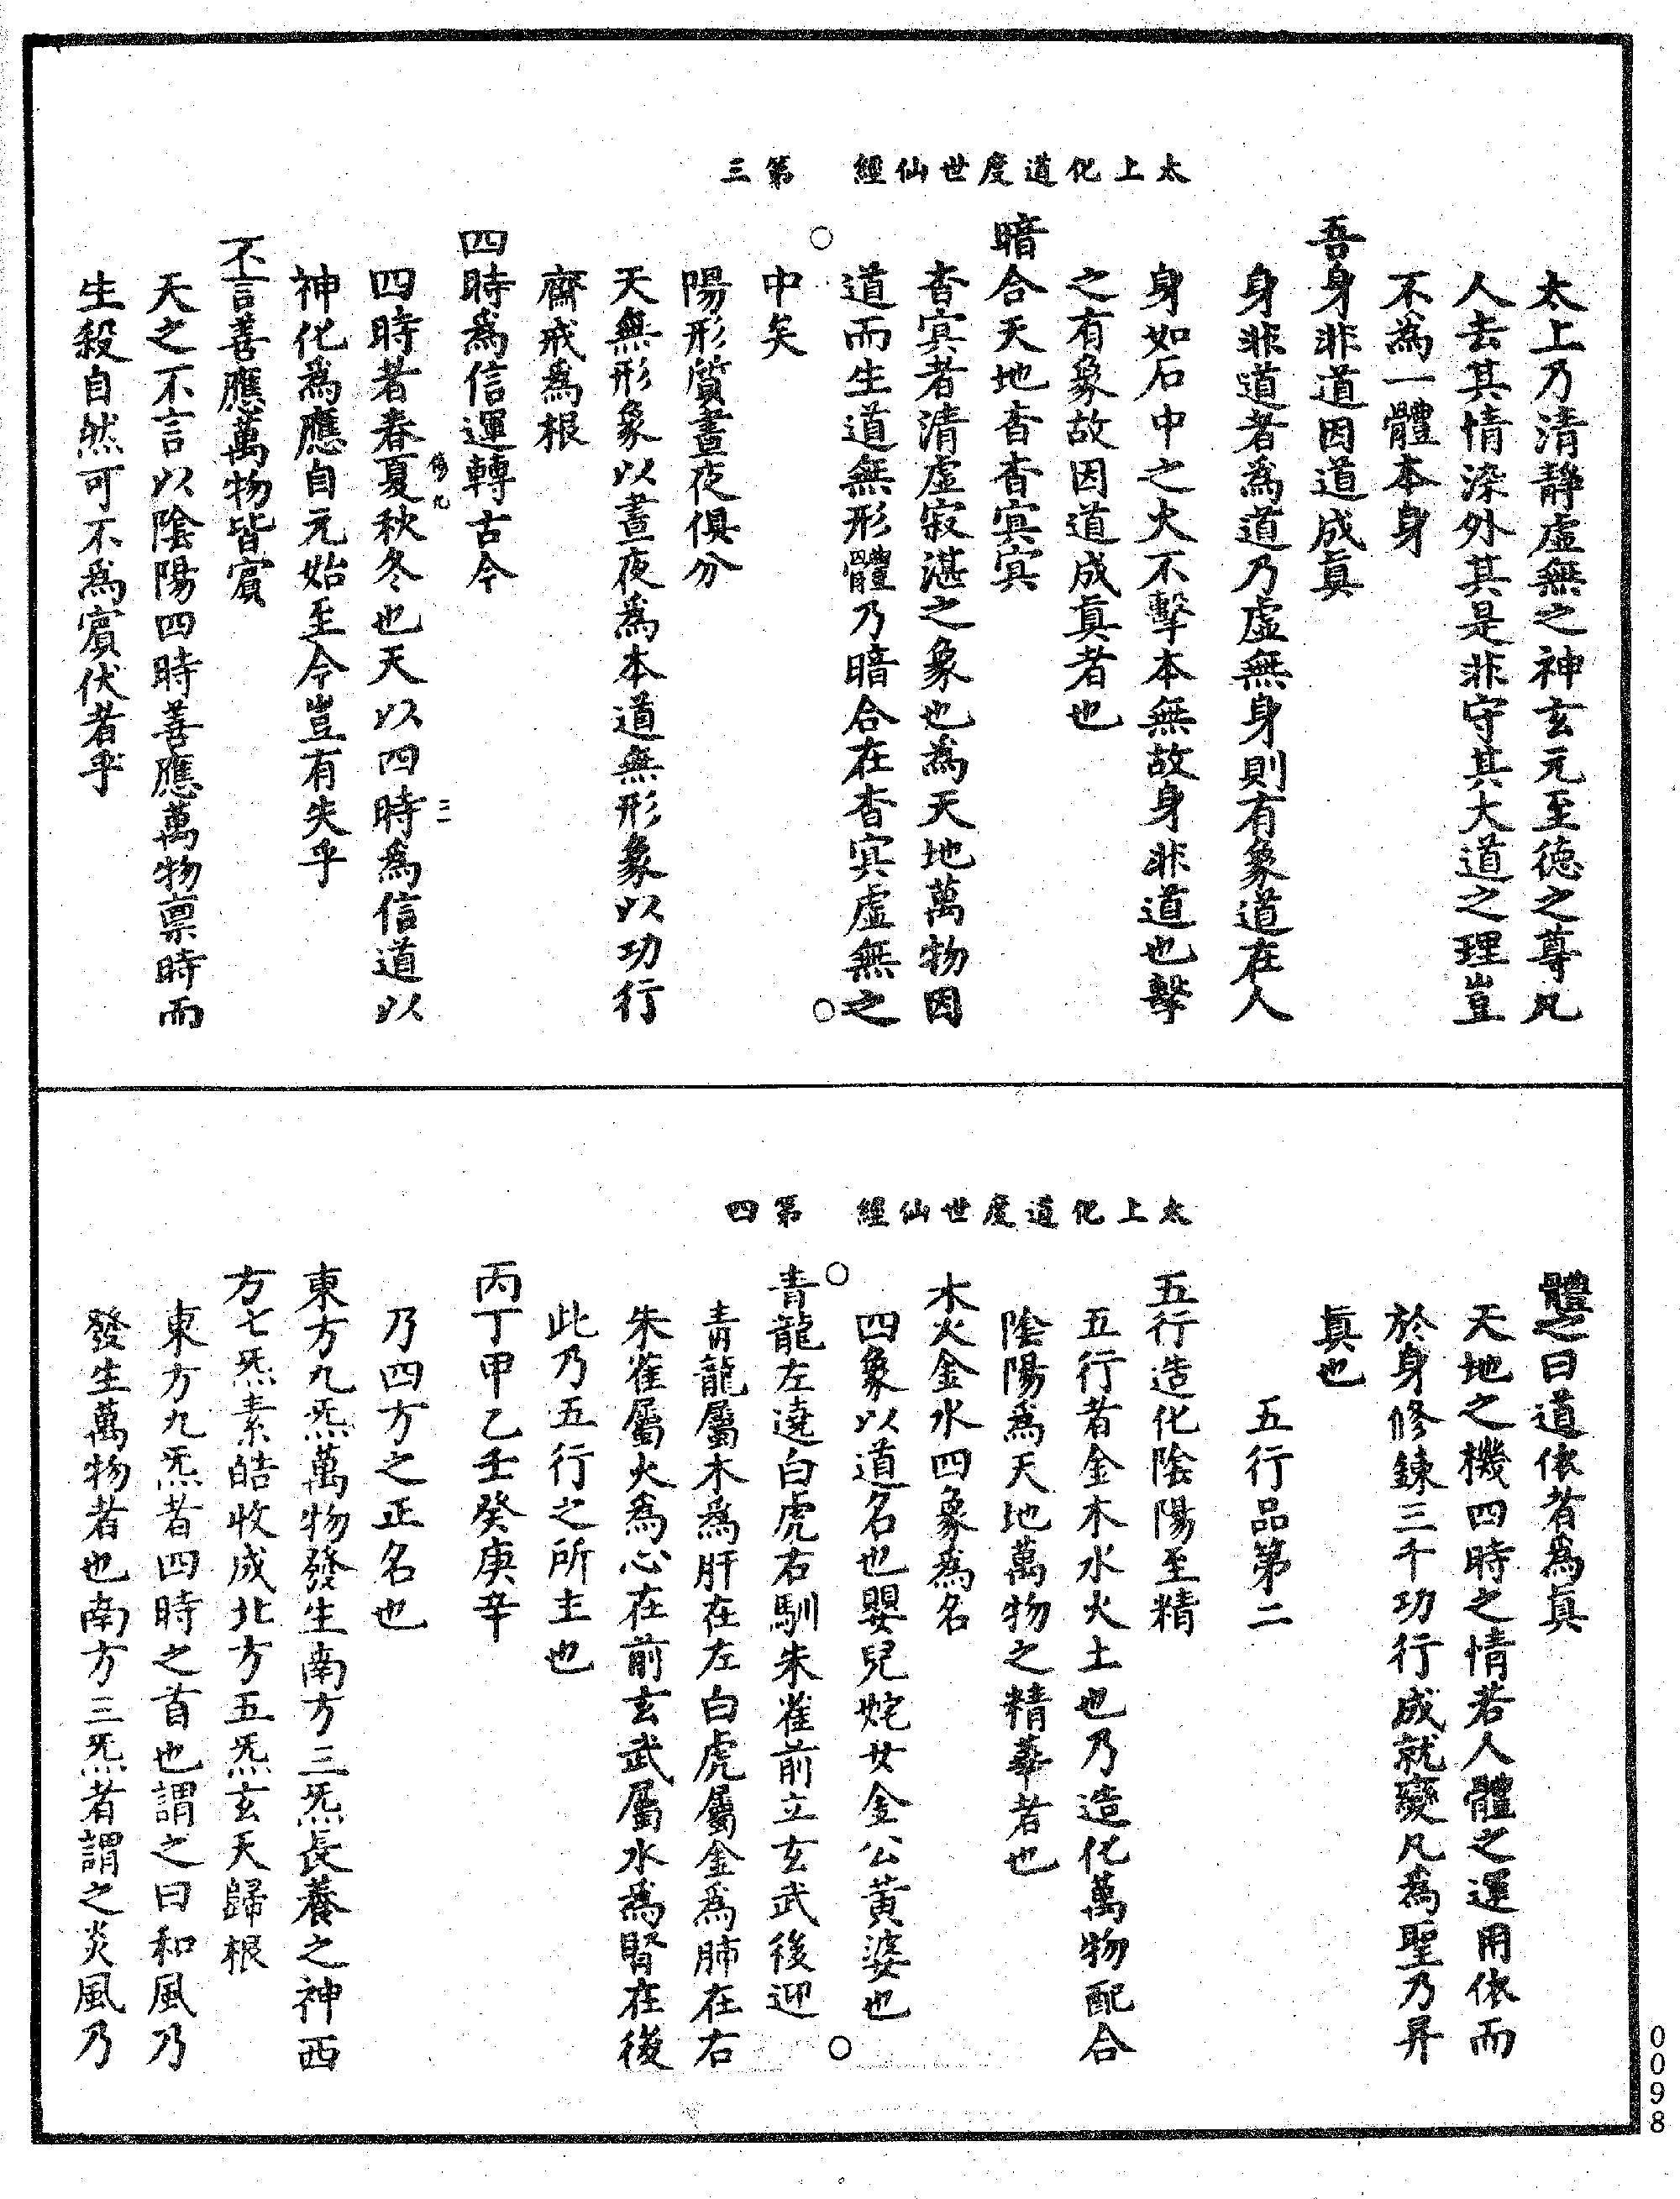 太上化道度世仙經　第三
太上乃清靜虛無之神玄元至德之尊凡
人去其情染外其是非守其大道之理豈
不為一體本身
吾身非道因道成眞
身非道者為道乃虛無身則有象道在人
身如石中之火不擊本無故身非道也擊
之有象故因道成眞者也
暗合天地杳杳㝠㝠
杳㝠者清虛寂湛之象也為天地萬物因
道而生道無形體乃暗合在杳㝠虛無之
中矣
陽形質晝夜俱分
天無形象以晝夜為本道無形象以功行
齋戒為根
四時為信運轉古今
四時者春夏秋冬也天以四時為信道以
二
神化為應自元始至今豈有失乎
不言善應萬物皆賓
天之不言以陰陽四時善應萬物稟時而
生殺自然可不為賓伏者乎
太上化道度世仙經　第四
體之曰道依者為眞
天地之機四時之情若人體之運用依而
於身修鍊三千功行成就變凡為聖乃昇
眞也
五行品第二
五行造化陰陽至精
五行者金木水火土也乃造化萬物配合
陰陽為天地萬物之精華者也
木火金水四象為名
四象以道名也嬰兒姹女金公黃婆也
青龍左遶白虎右馴朱雀前立玄武後迎
青龍屬木為肝在左白虎屬金為肺在右
朱雀屬火為心在前玄武屬水為腎在後
此乃五行之所主也
丙丁甲乙壬癸庚辛
乃四方之正名也
東方九炁萬物發生南方三炁長養之神西
方七炁素皓收成北方五炁玄天歸根
東方九炁者四時之首也謂之曰和風乃
發生萬物者也南方三炁者謂之炎風乃
0098